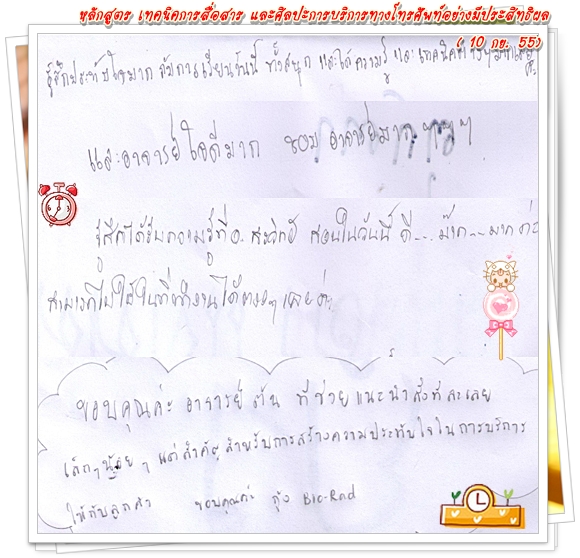 หลักสูตร เทคนิคการสื่อสาร และศิลปะการบริการทางโทรศัพท์อย่างมีประสิทธิผล
( 10 กย. 55)
รู้สึกประทับใจมาก กับการเรียนวันนี้ ทั้งสนุก และได้ความรู้ และเทคนิค
และอาจารย์ใจดีมาก ชอบ อาจารย์มากๆๆๆ
รู้สึกได้รับความรู้ที่อ. สอนในวันนี้ ดี... ม๊าก...มาก ค่ะ
สามารถไปใช้ในที่ทำงานได้ เลยค่ะ
ขอบคุณค่ะ อาจารย์ ต้น ที่ช่วยแนะนำสิ่งที่ละเลย
เล็กๆน้อย ๆ แต่สำคัญสำหรับการสร้างความประทับใจในการบริการ
ให้กับลูกค้า ขอบคุณค่ะ กุ้ง Bio-Rad